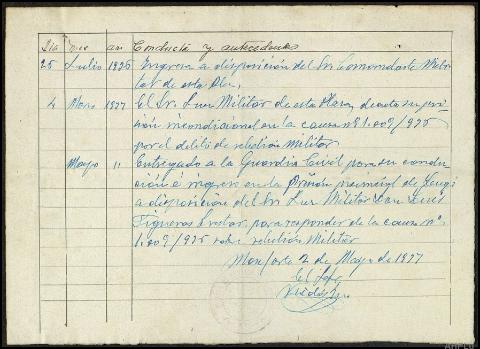 Dia mes año Conducta y antecedentes
25 Julio 1936 Ingresa a disposición del Sr. Comandante Mili-
tar de esta Plaza
4 Mars 1937 El Sr. Juez Militar de esta Plaza, decreta su pri-
sión incondicional en la causa nº 1.009/935
por el delito de rebelión militar
Mayo " Entregado a la Guardia Civil para su conduc-
ción é ingreso en la Prisión provincial de Lugo
a disposición del Sr. Juez Militar Don Luis
Figueras para responder de la causa nº
1.009/935 sobre rebelión Militar
Monforte 2 de Mayo de 1937
El Jefe